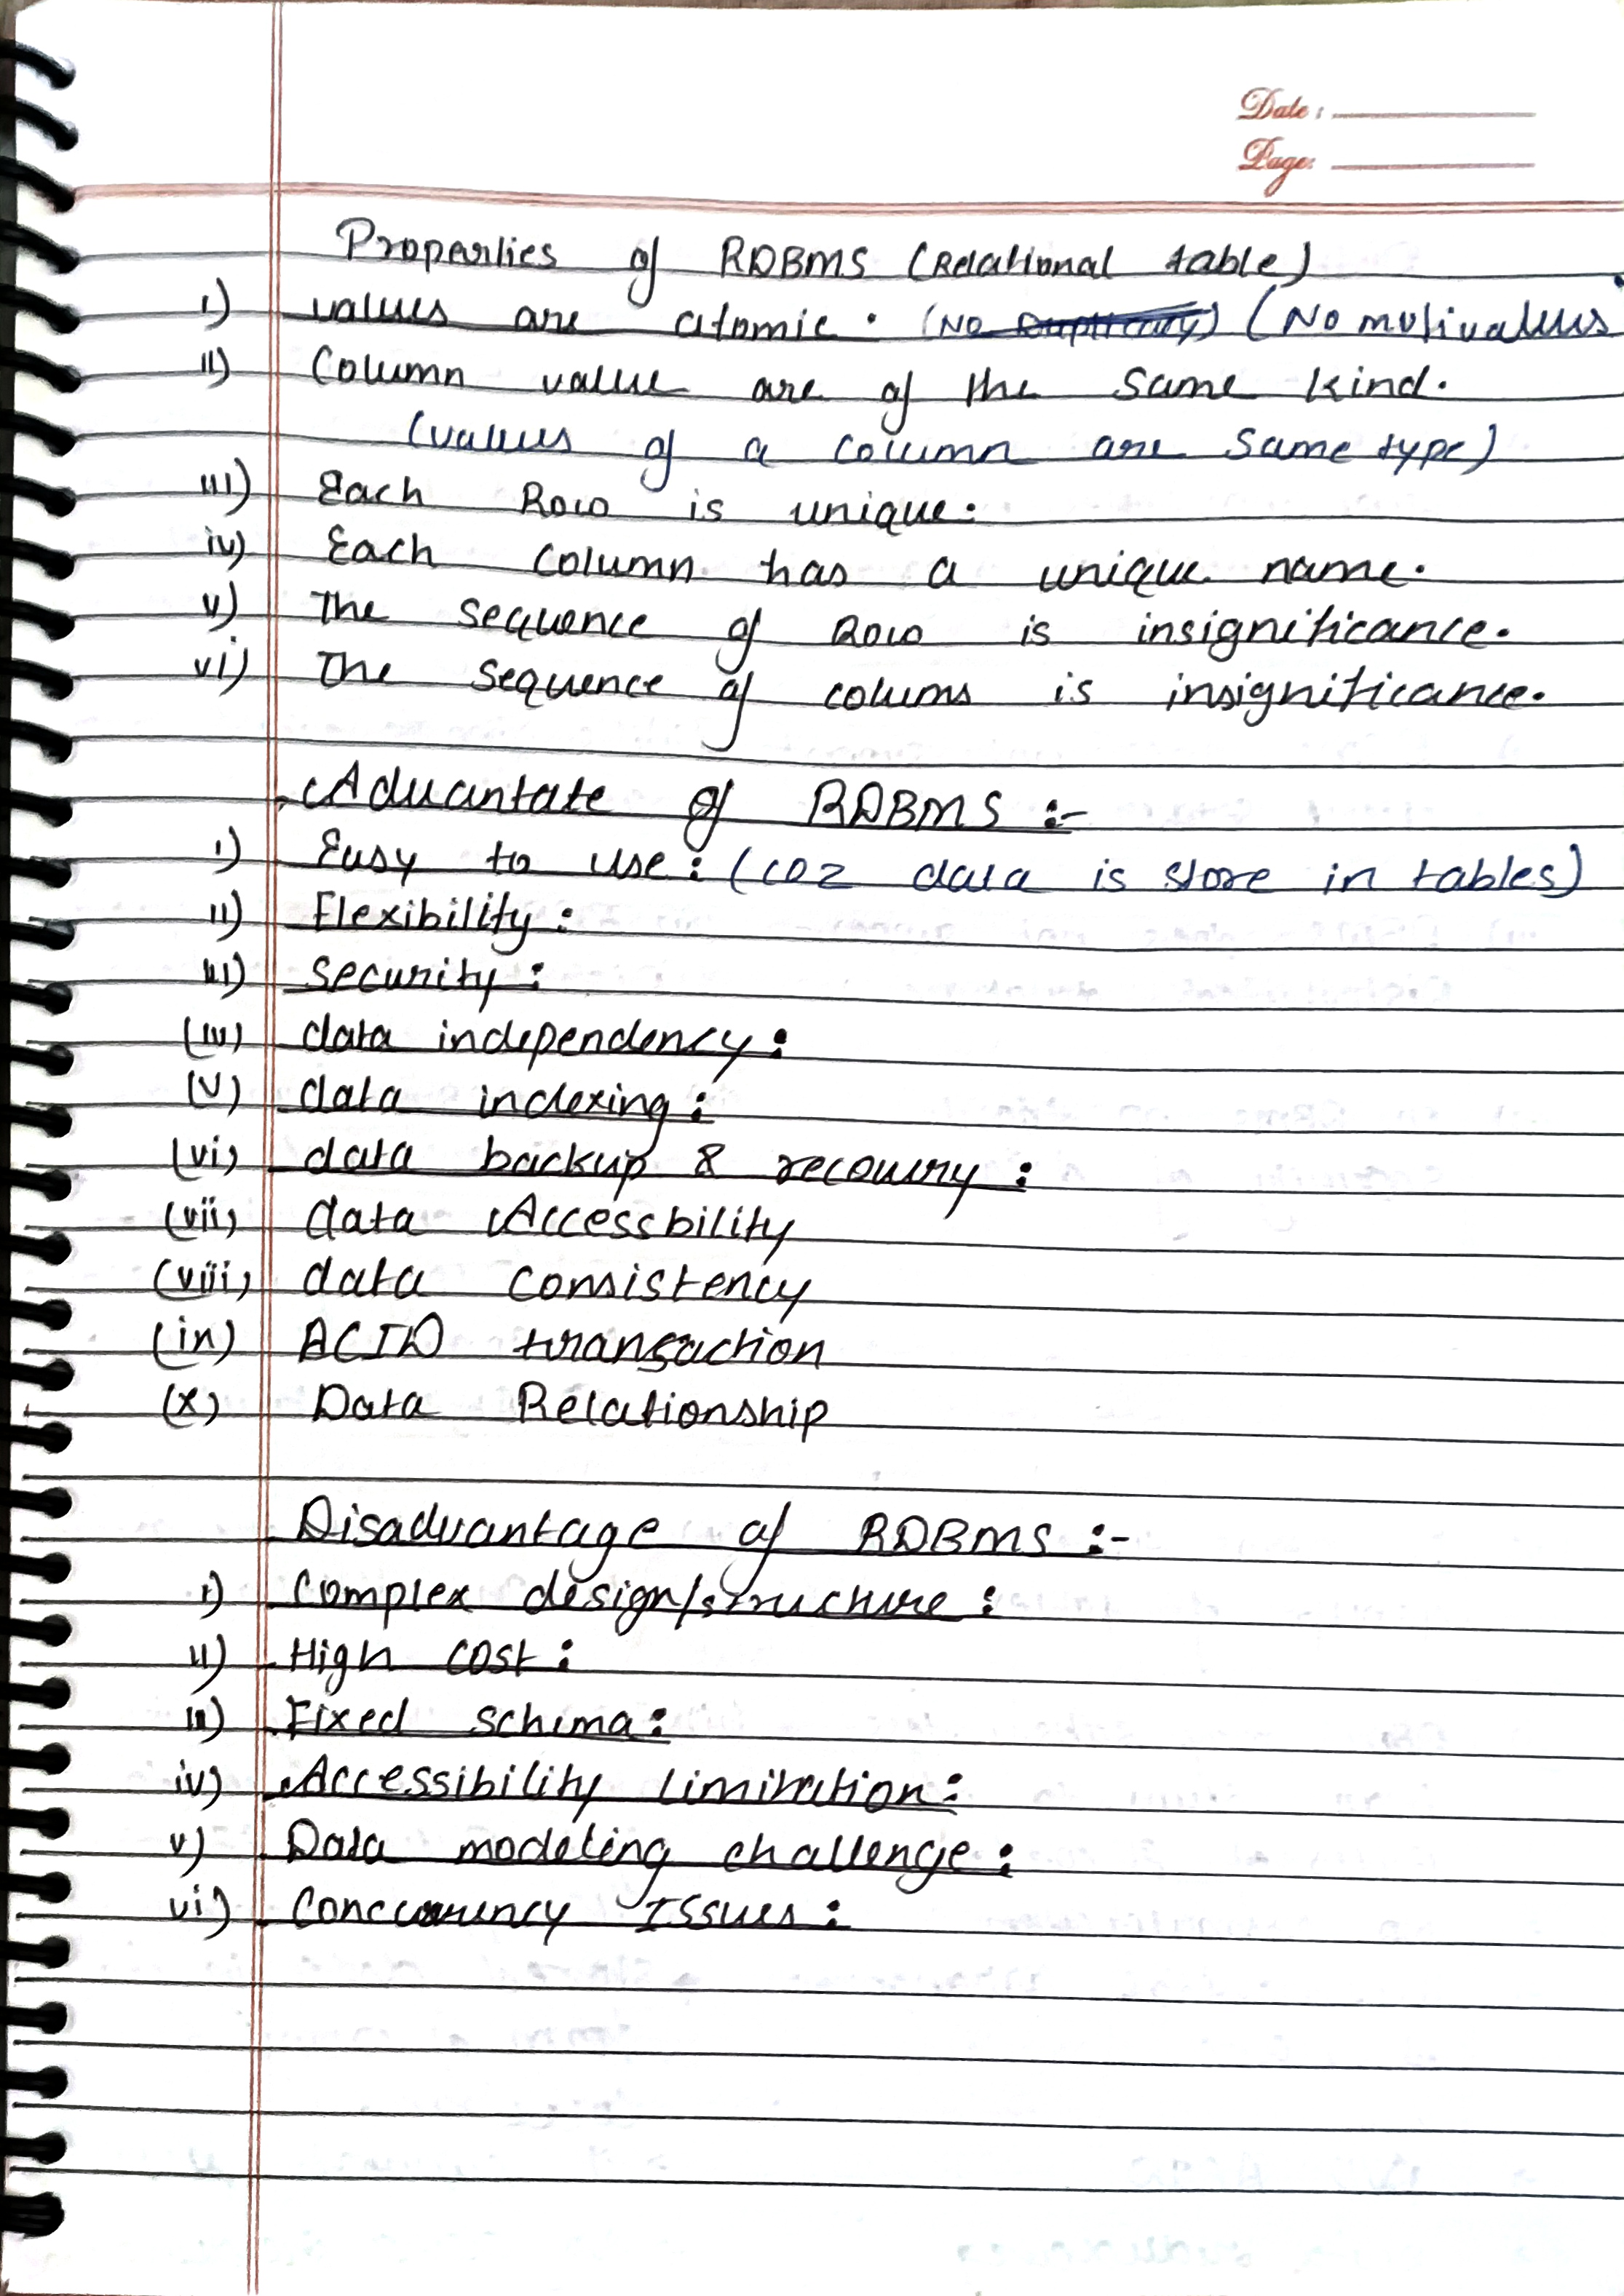 Date:
Page:
Properties of RDBMS (Relational table)
i) values are atomic. (No Duplicacy) (No mutivalues
ii) Column value are of the same kind.
(values of a column are same type)
iii) Each Row is unique.
iv) Each column has a unique name.
v) The sequence of Row is insignificance.
vi) The sequence of colums is insignificance.
Advantate of RDBMS :-
i) Easy to use: (coz data is store in tables)
ii) Flexibility:
iii) security:
(iv) data independency:
(v) data indexing:
(vi) data backup & recovery:
(vii) data Accessbility
(viii) data consistency
(ix) ACID transaction
(x) Data Relationship
Disadvantage of RDBMS :-
i) Complex design/structure:
ii) High cost:
iii) Fixed schema:
iv) Accessibility limitation:
v) Data modeling challenge:
vi) Concurrency Issues: